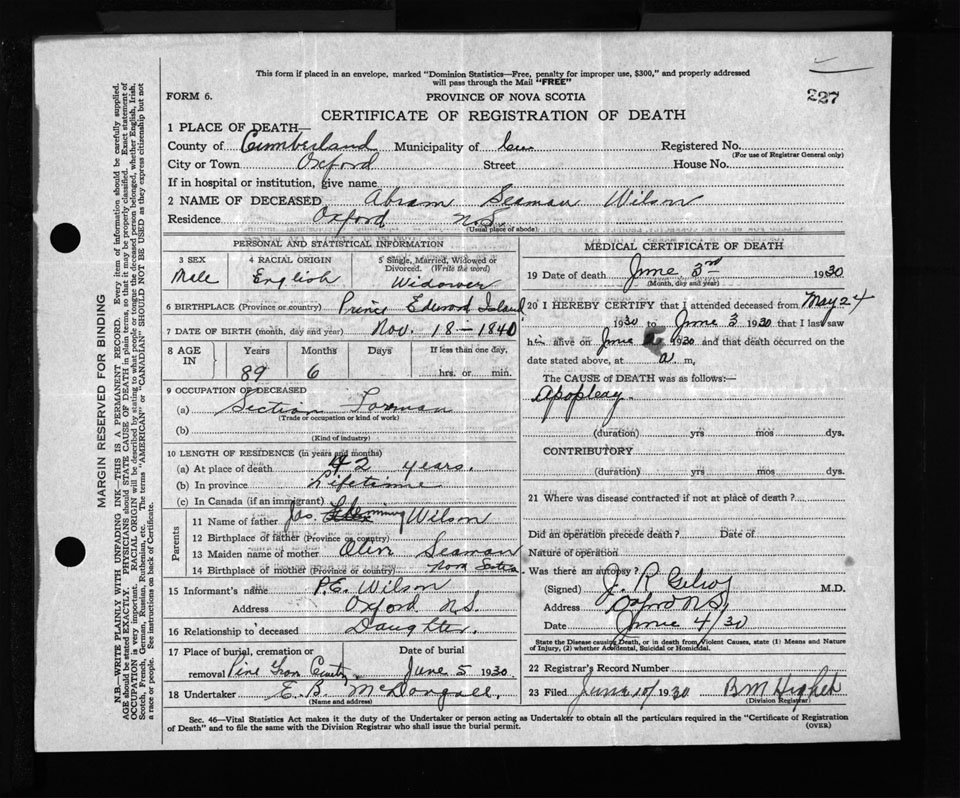 This form if placed in an envelope, marked "Dominion Statistics—Free, penalty for improper use, $300," and properly addressed
will pass through the Mail "FREE"
227
FORM 6.
PROVINCE OF NOVA SCOTIA
CERTIFICATE OF REGISTRATION OF DEATH
1 PLACE OF DEATH—
County of Cumberland Municipality of Cum Registered No.
(For use of Registrar General only)
City or Town Oxford Street House No.
If in hospital or institution, give name
2 NAME OF DECEASED Abram Seaman Wilson
Residence Oxford N.S.
(Usual place of abode)
PERSONAL AND STATISTICAL INFORMATION
3 SEX 4 RACIAL ORIGIN 5 Single, Married, Widowed or Divorced. (Write the word)
Male English Widower
6 BIRTHPLACE (Province or country) Prince Edward Island
7 DATE OF BIRTH (month, day and year) Nov. 18—1840
8 AGE IN Years Months Days If less than one day,
89 6 hrs. or min.
9 OCCUPATION OF DECEASED
(a) Section Forman
(Trade or occupation or kind of work)
(b)
(Kind of industry)
10 LENGTH OF RESIDENCE (in years and months)
(a) At place of death 42 years.
(b) In province Lifetime
(c) In Canada (if an immigrant)
Parents
11 Name of father Jas. Wilson
12 Birthplace of father (Province or country)
13 Maiden name of mother Seaman
14 Birthplace of mother (Province or country) Nova Scotia
15 Informant's name P.E. Wilson
Address Oxford N.S.
16 Relationship to deceased Daughter.
17 Place of burial, cremation or removal Date of burial
Pine Grove June 5 1930
18 Undertaker E.B. McDougall
(Name and address)
MEDICAL CERTIFICATE OF DEATH
19 Date of death June 3rd 1930
(Month, day and year)
20 I HEREBY CERTIFY that I attended deceased from May 24
1930 to June 3 1930 that I last saw
him alive on June 2 1930 and that death occurred on the
date stated above, at a. m,
The CAUSE of DEATH was as follows:—
Apoplexy.
(duration) yrs mos dys.
CONTRIBUTORY
(duration) yrs mos dys.
21 Where was disease contracted if not at place of death?
Did an operation precede death? Date of
Nature of operation
Was there an autopsy?
(Signed) J. R. Gilroy M.D.
Address Oxford N.S.
Date June 4/30
State the Disease causing Death, or in death from Violent Causes, state (1) Means and Nature
of Injury, (2) whether Accidental, Suicidal or Homicidal.
22 Registrar's Record Number
23 Filed June 10/ 1930 B M
(Division Registrar)
Sec. 46—Vital Statistics Act makes it the duty of the Undertaker or person acting as Undertaker to obtain all the particulars required in the "Certificate of Registration
of Death" and to file the same with the Division Registrar who shall issue the burial permit.
(OVER)
MARGIN RESERVED FOR BINDING
N.B.—WRITE PLAINLY WITH UNFADING INK—THIS IS A PERMANENT RECORD. Every item of information should be carefully supplied.
AGE should be stated EXACTLY. PHYSICIANS should STATE CAUSE OF DEATH in plain terms, so that it may be properly classified. Exact statement of
OCCUPATION is very important. RACIAL ORIGIN will be described by stating to what people or tongue the deceased person belonged, whether English, Irish,
Scotch, French, German, Russian, Ruthenian, etc. The terms "AMERICAN" or "CANADIAN" SHOULD NOT BE USED as they express citizenship but not
a race or people. See instructions on back of Certificate.